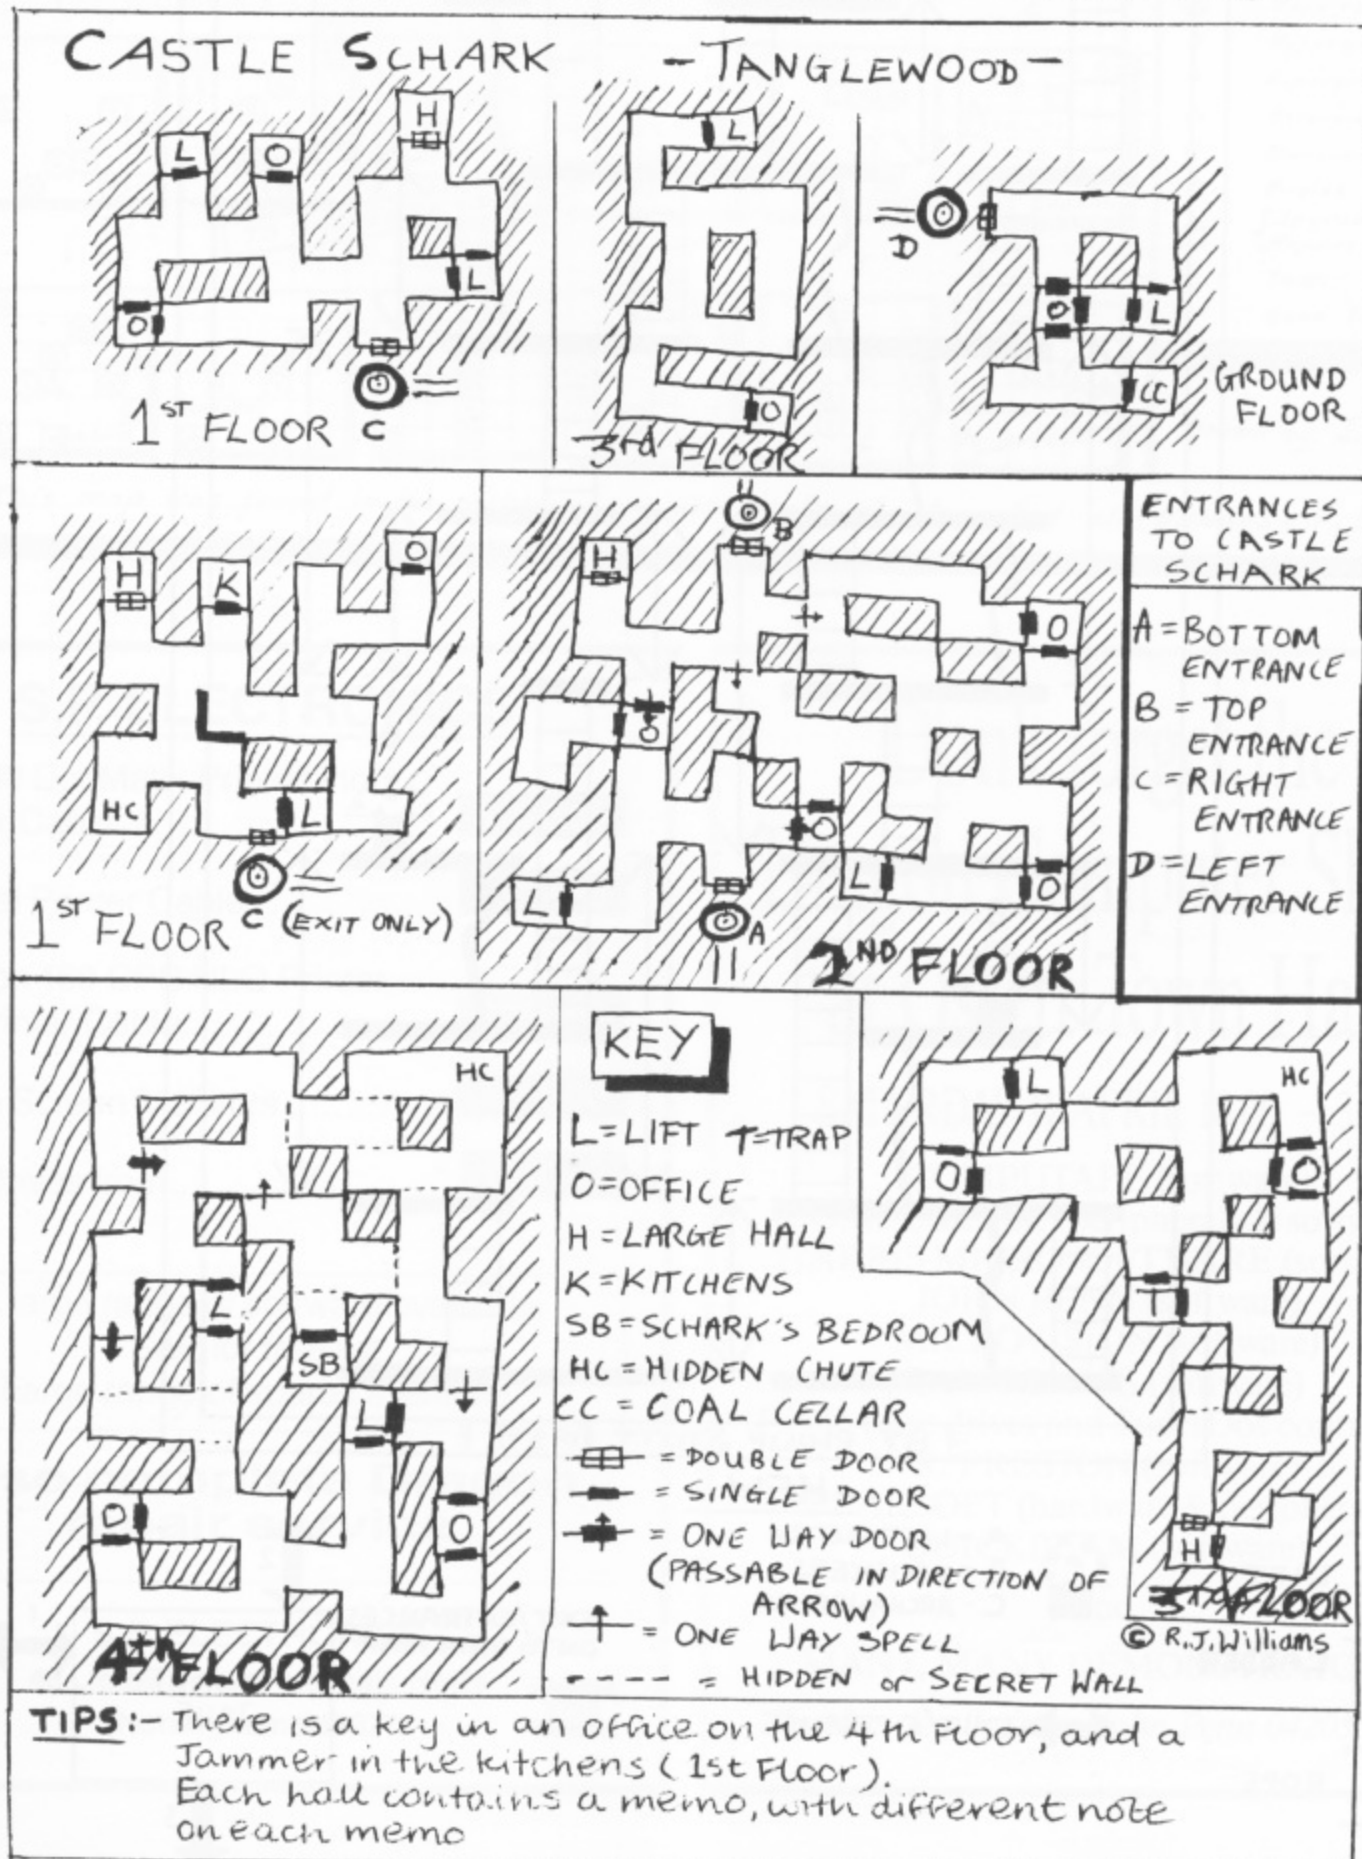 CASTLE SCHARK - TANGLEWOOD -
L
O
H
L
O
1ST FLOOR C
L
O
3rd FLOOR
D
O
L
CC
GROUND
FLOOR
H
K
O
HC
L
C (EXIT ONLY)
1ST FLOOR
B
H
O
O
O
L
L
O
A
2ND FLOOR
ENTRANCES
TO CASTLE
SCHARK
A = BOTTOM
ENTRANCE
B = TOP
ENTRANCE
C = RIGHT
ENTRANCE
D = LEFT
ENTRANCE
HC
L
SB
L
O
O
4th FLOOR
KEY
L = LIFT T = TRAP
O = OFFICE
H = LARGE HALL
K = KITCHENS
SB = SCHARK'S BEDROOM
HC = HIDDEN CHUTE
CC = COAL CELLAR
= DOUBLE DOOR
= SINGLE DOOR
= ONE WAY DOOR
(PASSABLE IN DIRECTION OF
ARROW)
= ONE WAY SPELL
---- = HIDDEN or SECRET WALL
L
HC
O
O
T
H
FLOOR
© R.J. Williams
TIPS :- There is a key in an office on the 4th Floor, and a
Jammer in the kitchens (1st Floor).
Each hall contains a memo, with different note
on each memo